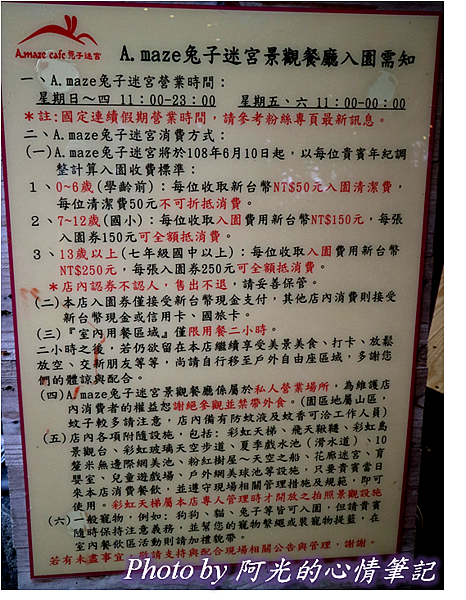 A.maze cafe 兔子迷宮
A.maze兔子迷宮景觀餐廳入園需知
一、A.maze兔子迷宮營業時間：
星期日～四 11：00-23：00 星期五、六 11：00-00：00
＊註:國定連續假期營業時間，請參考粉絲專頁最新訊息。
二、A.maze兔子迷宮消費方式：
(一)A.maze兔子迷宮將於108年6月10日起，以每位貴賓年紀調
整計算入園收費標準：
1、0~6歲(學齡前)：每位收取新台幣NT$50元入園清潔費，
每位清潔費50元不可折抵消費。
2、7~12歲(國小)：每位收取入園費用新台幣NT$150元，每張
入園券150元可全額抵消費。
3、13歲以上(七年級國中以上)：每位收取入園費用新台幣
NT$250元，每張入園券250元可全額抵消費。
＊店內認券不認人，售出不退，請妥善保管。
(二)本店入園券僅接受新台幣現金支付，其他店內消費則接受
新台幣現金或信用卡、國旅卡。
(三)『室內用餐區域』僅限用餐二小時。
二小時之後，若仍欲留在本店繼續享受美景美食、打卡、放鬆
放空、交新朋友等等，尚請自行移至戶外自由座區域，多謝您
們的體諒與配合。
(四)A.maze兔子迷宮景觀餐廳係屬於私人營業場所，為維護店
內消費者的權益恕謝絕參觀並禁帶外食。(園區地屬山區，
蚊子較多請注意，店內備有防蚊液及蚊香可洽工作人員)
(五)店內各項附隨設施，包括: 彩虹天梯、飛天鞦韆、彩虹島
景觀台、彩虹玻璃天空步道、夏季戲水池（滑水道）、10
釐米無邊際網美池、粉紅樹屋~天空之船、花廊迷宮、育
嬰室、兒童遊戲場、戶外網美球池等設施，只要貴賓當日
來本店消費餐飲，並遵守現場相關管理措施及規範，即可
使用。彩虹天梯屬本店專人管理時才開放之拍照景觀設施
(六)一般寵物，例如: 狗狗、貓、兔子等皆可入園，但請貴賓
隨時保持注意義務，並幫您的寵物繫繩或裝寵物提籃，在
室內餐飲區活動則請加禮貌帶。
若有未盡事宜，敬請支持與配合現場相關公告與管理，謝謝。
Photo by 阿光的心情筆記